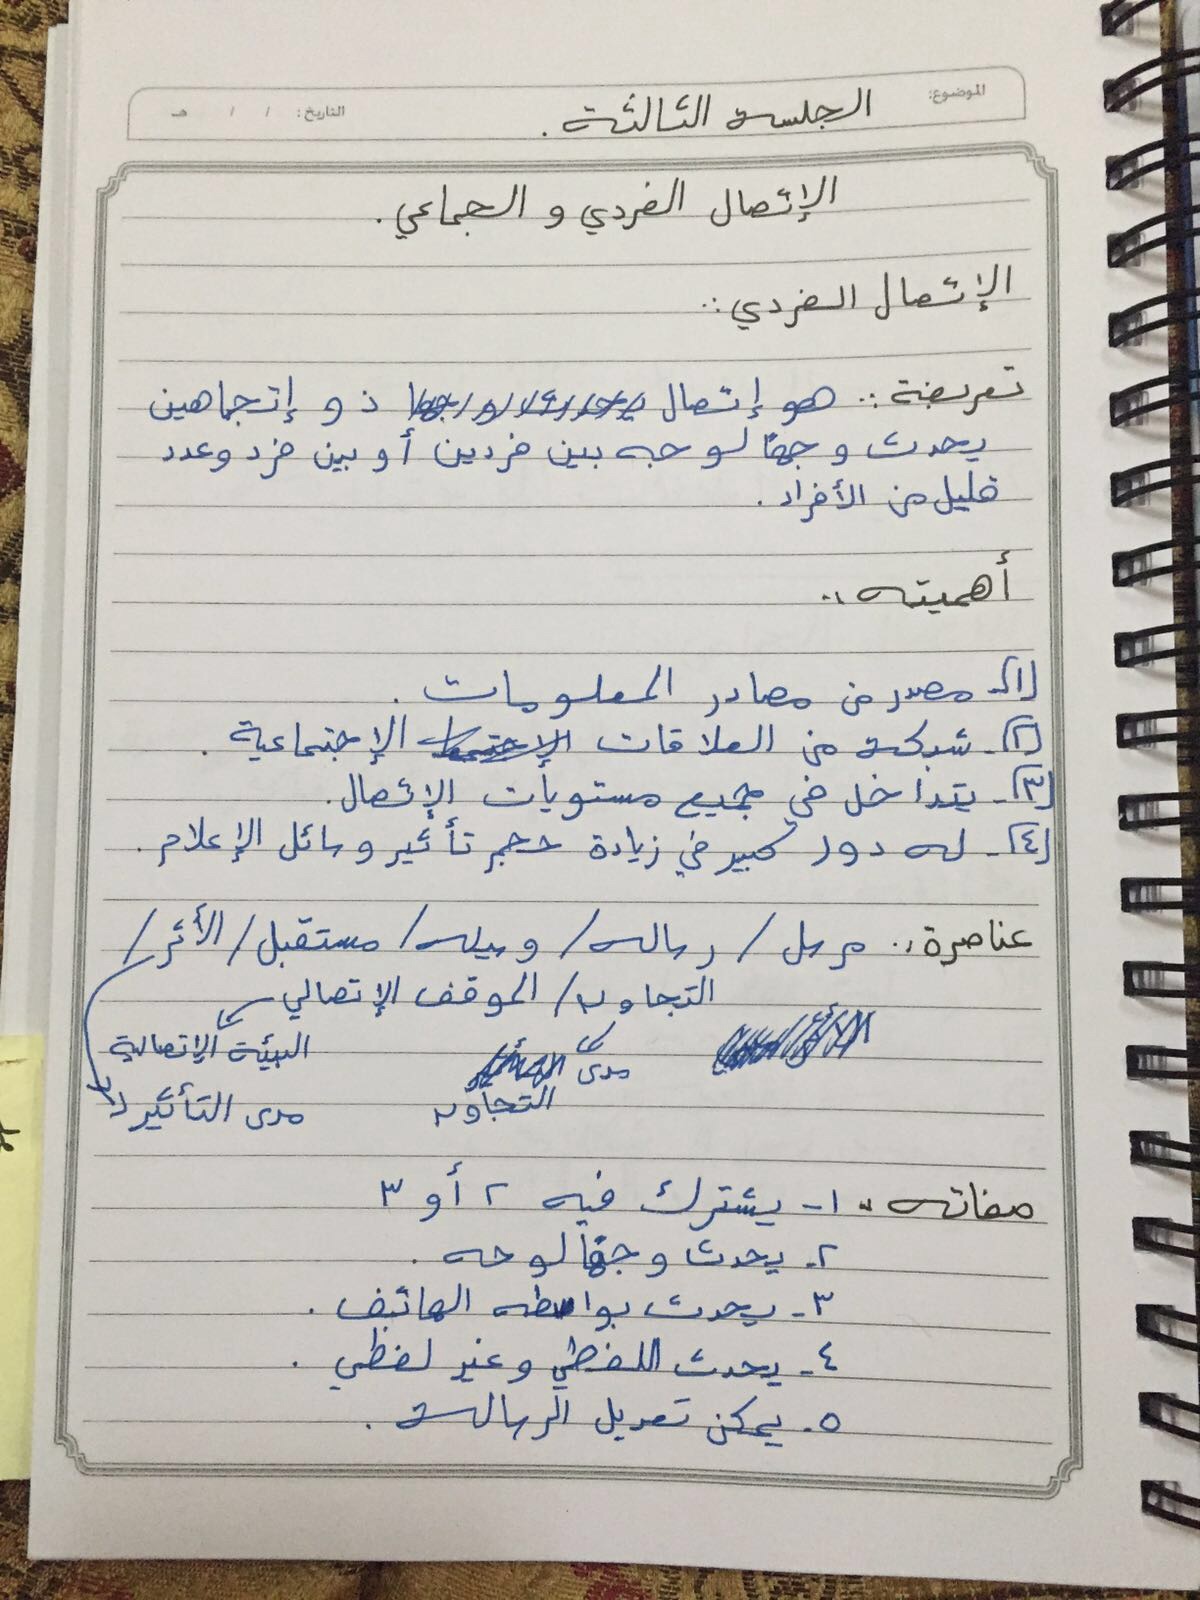 الموضوع: الجلسة الثالثة. التاريخ: / / هـ
الإتصال الفردي و الجماعي.
الإتصال الفردي :.
تعريفة :. هو إتصال ذو إتجاهين
يحدث وجهًا لوجه بين فردين أو بين فرد وعدد
قليل من الأفراد.
أهميته :.
(١)- مصدر من مصادر المعلومات.
(٢)- شبكة من العلاقات الإجتماعية.
(٣)- يتداخل في جميع مستويات الإتصال.
(٤)- له دور كبير في زيادة حجم تأثير وسائل الإعلام.
عناصرة :. مرسل / رساله / وسيله / مستقبل / الأثر /
التجاوب / الموقف الإتصالي
البيئة الإتصالية
مدى
التجاوب
مدى التأثير
صفاته :. ١- يشترك فيه ٢ أو ٣
٢- يحدث وجهًا لوجه.
٣- يحدث بواسطه الهاتف.
٤- يحدث اللفظي وغير لفظي.
٥- يمكن تعديل الرسالة.